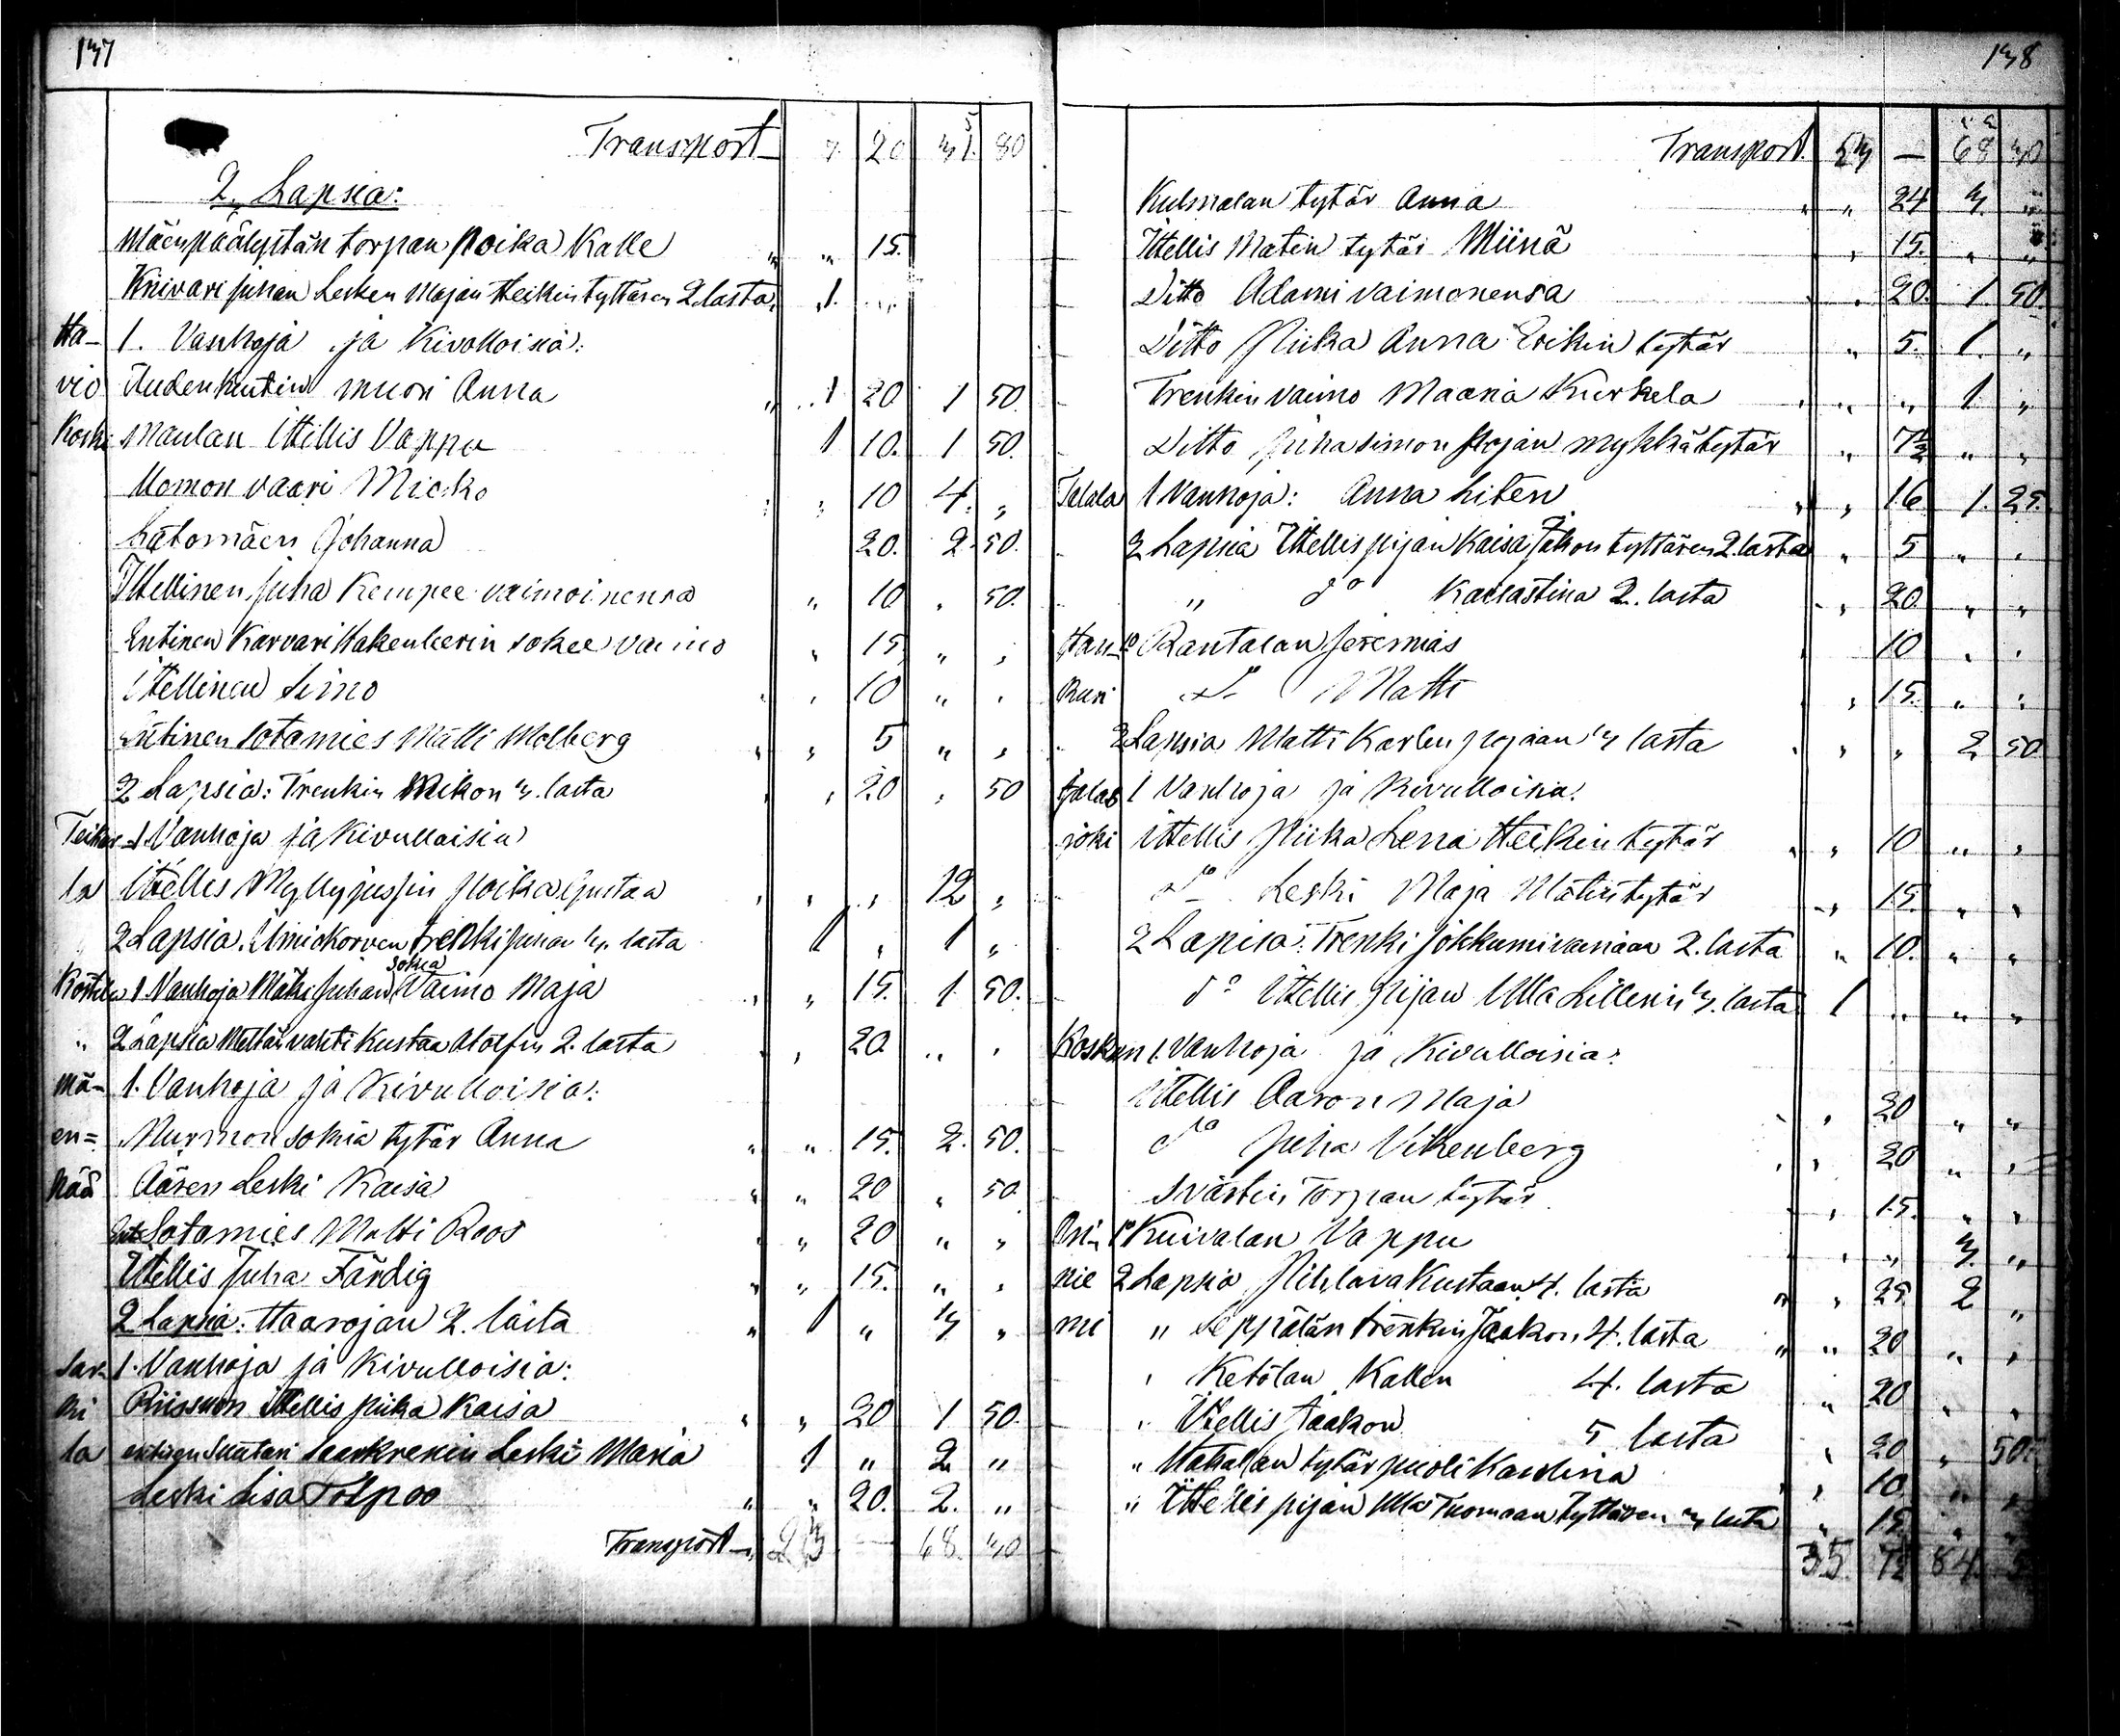 137
Transport 7. 20 31. 80
2. Lapsia:
Mäenpäälystän torpan poika Kalle " " 15.
Knivari Juhan Lesken Majan Heikin tyttären 2 lasta " 1. "
Ha- 1. Vanhoja ja Kivolloisia:
vio Uudenkuntin muori Anna " 1 20 1 50.
Koski Maulan Ittellis Vappu 1 10. 1 50.
Momon vaari Micko " " 10 4. "
Latomäen Johanna 20. 2. 50.
Ittellinen Juha Kempee vaimoinensa " 10 " 50.
Entinen Karvari Hakenbeerin sokee vaimo " 15 " "
Ittellinen Simo " " 10 " "
Entinen Sotamies Matti Molberg " " 5 " "
2 Lapsia: Trenkin Mikon 3. lasta " " 20 " 50
Teikar- 1 Vanhoja ja Kivulloisia
la Ittellis Myllyjussin poika Gustaa " " " 12 "
2 Lapsia. Umickorven trenki Juhan 3. lasta 1 " 1 "
Köstilä 1 Vanhoja Mäki Juhan sokia Vaimo Maja " " 15. 1 50.
" 2 Lapsia Mettän vahti Kustaa Alolfin 2. lasta " " 20. " "
Mä- 1. Vanhoja ja Kivulloisia:
en= Nurmon sokia tytär Anna " " 15. 2. 50.
pää Aären Leski Kaisa " " 20 " 50
Ent Sotamies Matti Roos " " 20 " "
Ittellis Juha Färdig " " 15. " "
2 Lapsia: Haarojan 2. lasta " 1 " 3 "
Sar- 1. Vanhoja ja Kivulloisia:
ki Riissuon ittellis piika Kaisa " " 20 1 50.
la entisen Suutari Saarkrenin Leski Maria 1 " 2 "
Leski Lisa Tolpoo " " 20. 2. "
Transport 23 — 68. 30
138
Transport. 23 — 68 30
Kulmalan tytär Anna " " 24 3. "
Ittellis Matin tytär Miinä " 15. " "
Ditto Adami vaimonensa " " 20. 1. 50
Ditto Piika Anna Erikin tytär " 5. 1. "
Trenkin vaimo Maaria Kurkela " " " 1 "
Ditto Juha Simon pojan mykkä tytär " 7½ " "
Talala 1 Vanhoja: Anna Liten " " 16 1. 25.
2 Lapsia Ittellis pijan Kaisa Jakon tyttären 2. lasta " 5 " "
" do Kaisastina 2. lasta " 20. " "
Han- 1o Rantalan Jeremias " 10 " "
kuri do Matti " 15. " "
2 Lapsia Matti Karlen pojaan 3 lasta " " " 2 50
Jalas 1 Vanhoja ja Kivulloisia:
joki Ittellis Piika Lena Heikin tytär " " 10 " "
do Leski Maja Matin tytär " 15. " "
2 Lapsia: Trenki Jokkumivainaan 2. lasta " 10. " "
do Ittellis pijan Ulla Lillenin 3. lasta 1 " " "
Kosken 1. Vanhoja ja Kivulloisia:
Ittellis Aaron Maja " " 20 " "
do Juha Vikenberg " " 20 " "
Svärtin Torpan tytär " 15. " "
Ori- 1o Kuivalan Vappu " " 3. "
nie 2 Lapsia Pihlava Kustaan 4. lasta " " 25 2 "
mi " Seppälän trenkin Jaakon 4. lasta " " 20 " "
" Ketolan Kallen 4. lasta " 20 " "
" Ittellis Jaakon 5 lasta " 20 " 50.
" Hakalan tytär puoli Karolina " " 10 " "
" Ittellis pijan Ulla Tuomaan tyttären 3 lasta " 15 " "
35. 7½ 84. 5